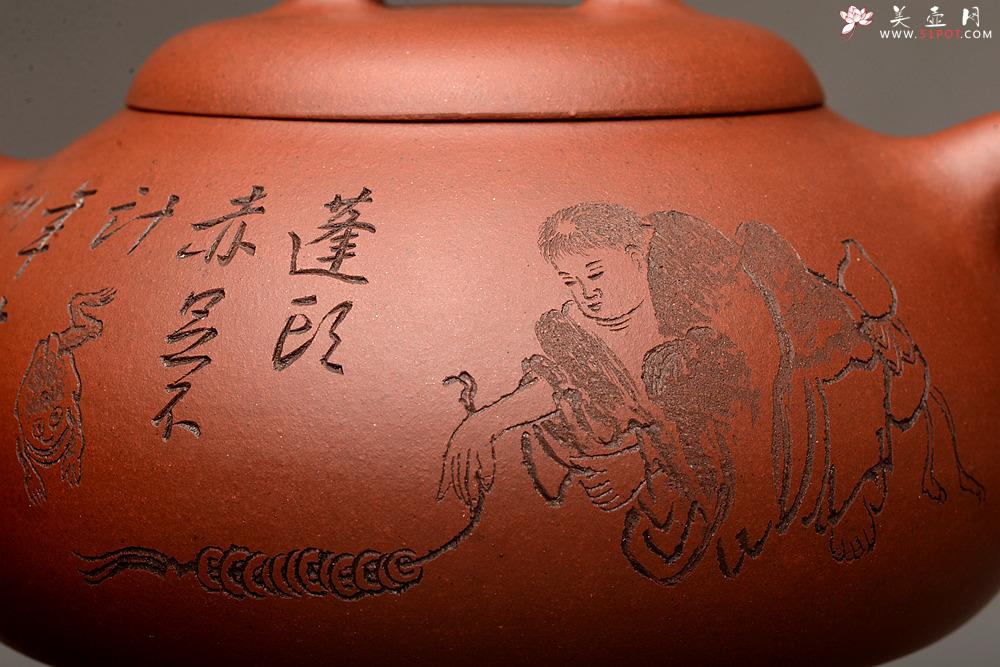 美壶月
WWW.51POT.COM
蓬頭
赤足不
計年